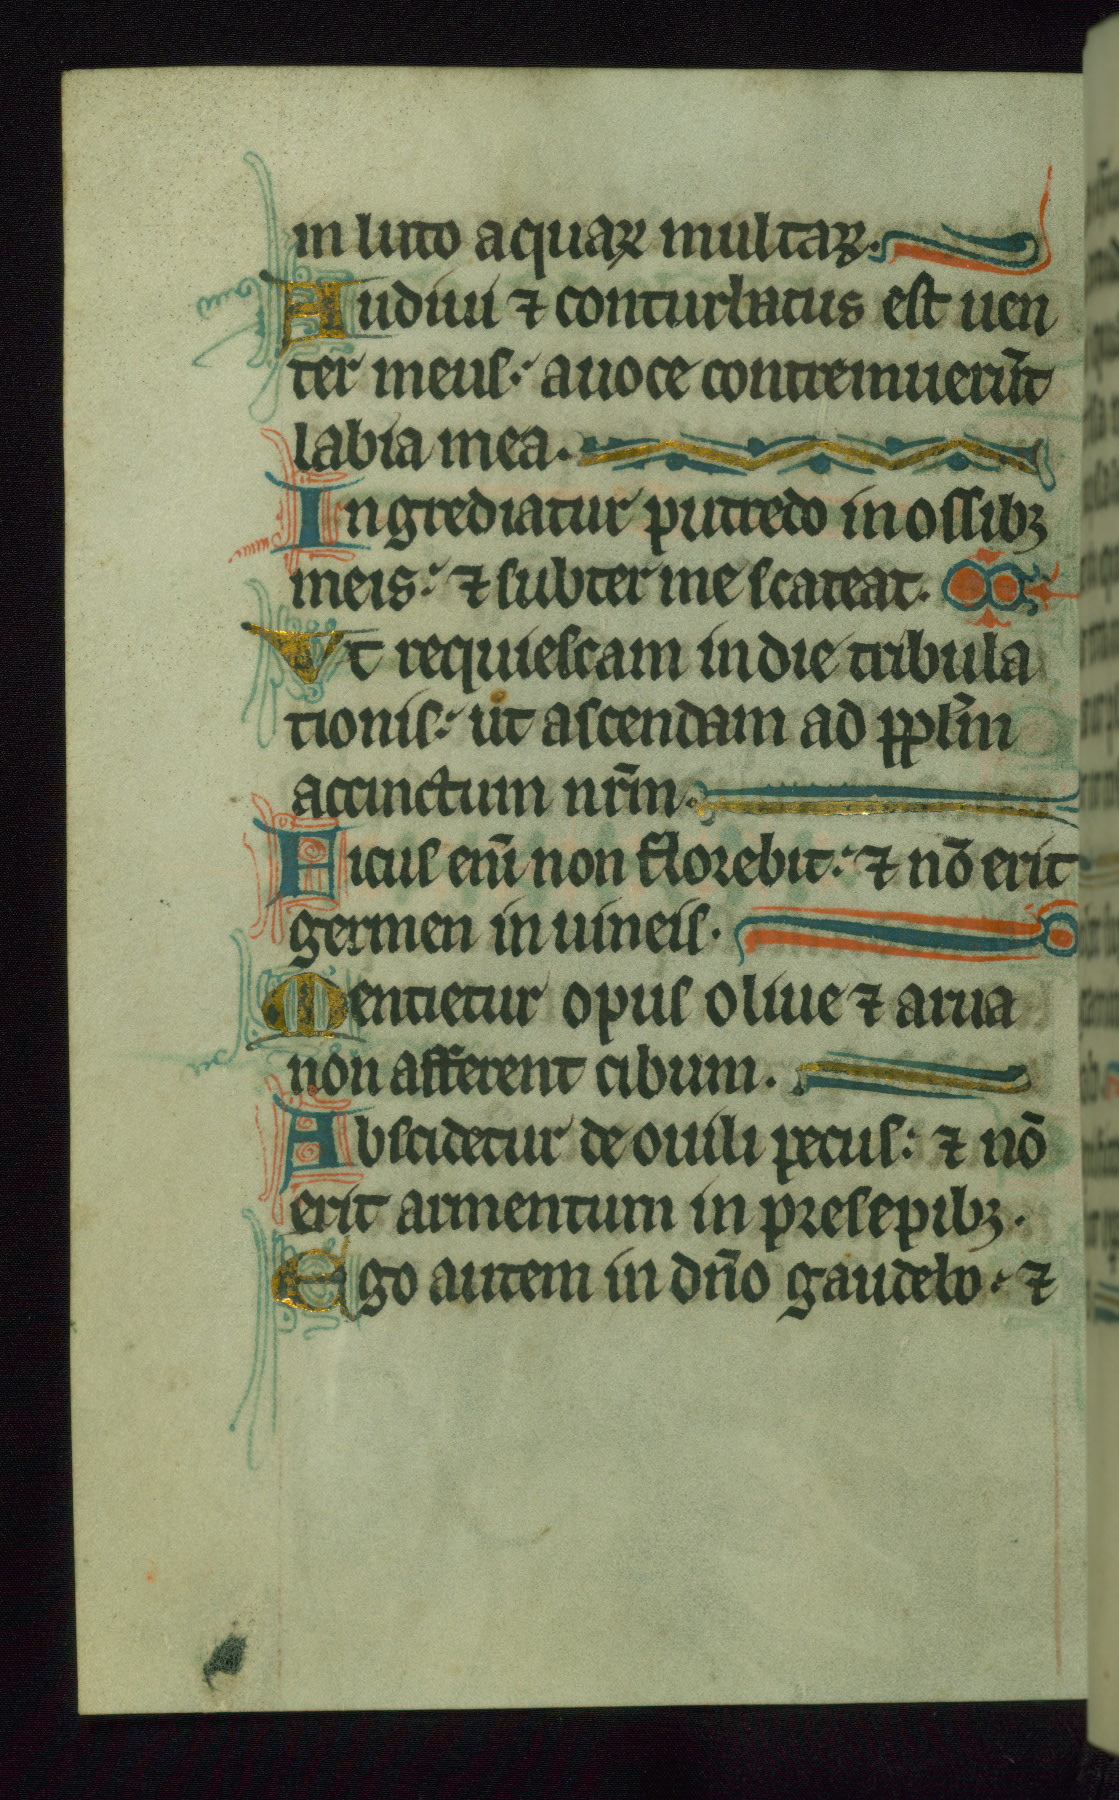 in luto aquaꝝ multaꝝ.
Audiui ⁊ conturbatus est uen
ter meus: a uoce contremuerūt
labia mea.
Ingrediatur putredo in ossibꝫ
meis: ⁊ subter me scateat.
Vt requiescam in die tribula
tionis: ut ascendam ad pplm̄
accinctum nrm̄.
Ficus enī non florebit: ⁊ nō erit
germen in uineis.
Mentietur opus oliue ⁊ arua
non afferent cibum.
Abscidetur de ouili pecus: ⁊ nō
erit armentum in presepibꝫ.
Ego autem in dn̄o gaudebo: ⁊